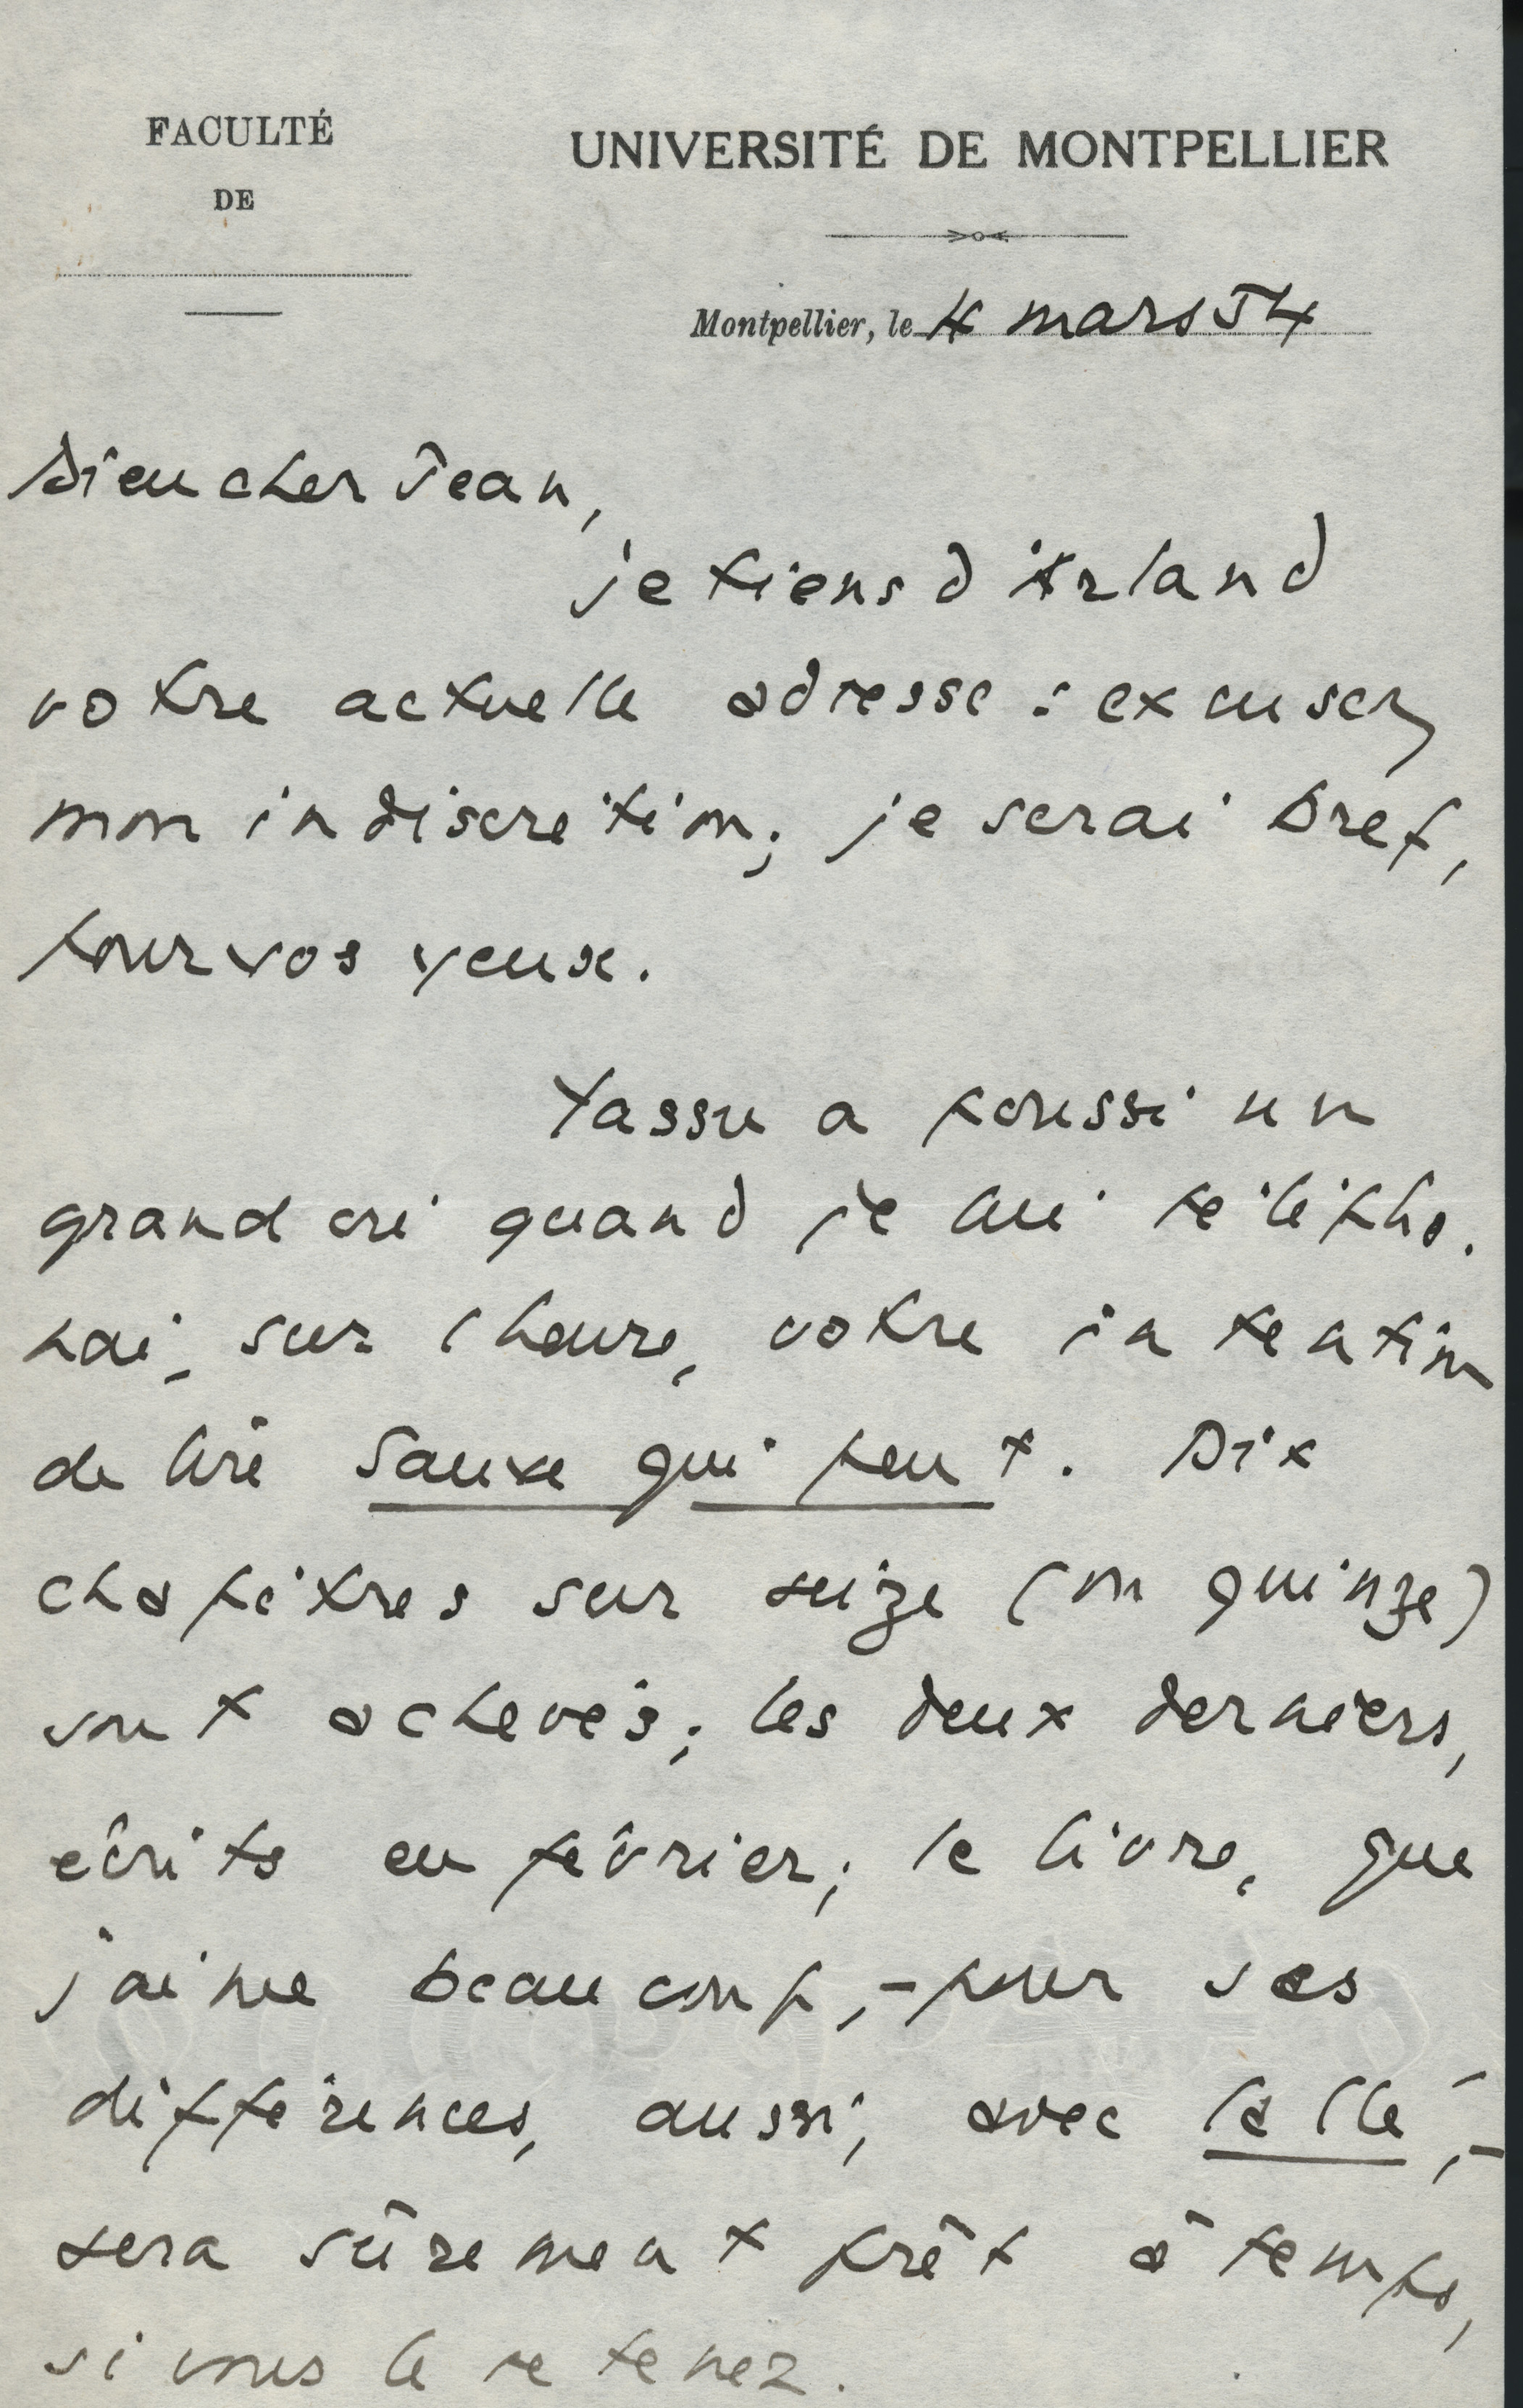 FACULTÉ
DE
UNIVERSITÉ DE MONTPELLIER
Montpellier, le 4 mars 54
Bien cher Jean,
je tiens d'Arland
votre actuelle adresse : excusez
mon indiscrétion ; je serai bref,
pour vos yeux.
Yassu a poussé un
grand cri quand je lui télépho-
nai, sur l'heure, votre intention
de lire Sauve qui peut. Dix
chapitres sur seize (ou quinze)
sont achevés ; les deux derniers,
écrits en février ; le livre, que
j'aime beaucoup, - pour ses
différences, aussi, avec Lallé, -
sera sûrement prêt à temps,
si vous le retenez.